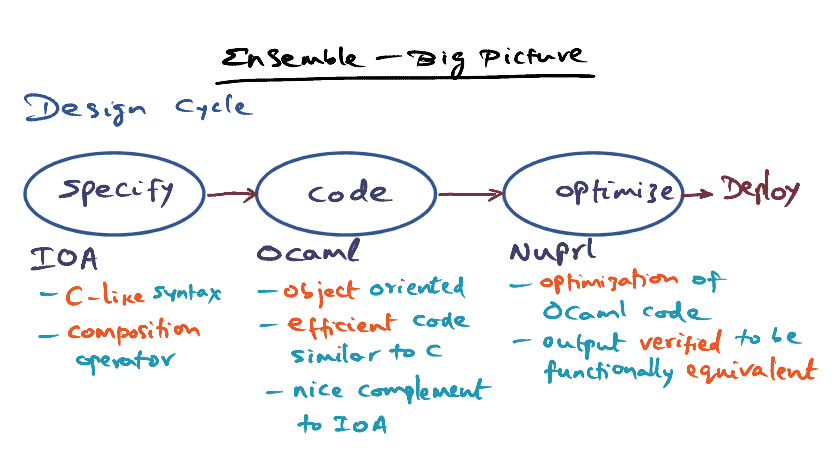 Ensemble - Big Picture
Design Cycle
specify
code
optimize
Deploy
IOA
- C-like syntax
- composition
operator
Ocaml
- object oriented
- efficient code
similar to C
- nice complement
to IOA
Nuprl
- optimization of
OCaml code
- output verified to be
functionally equivalent